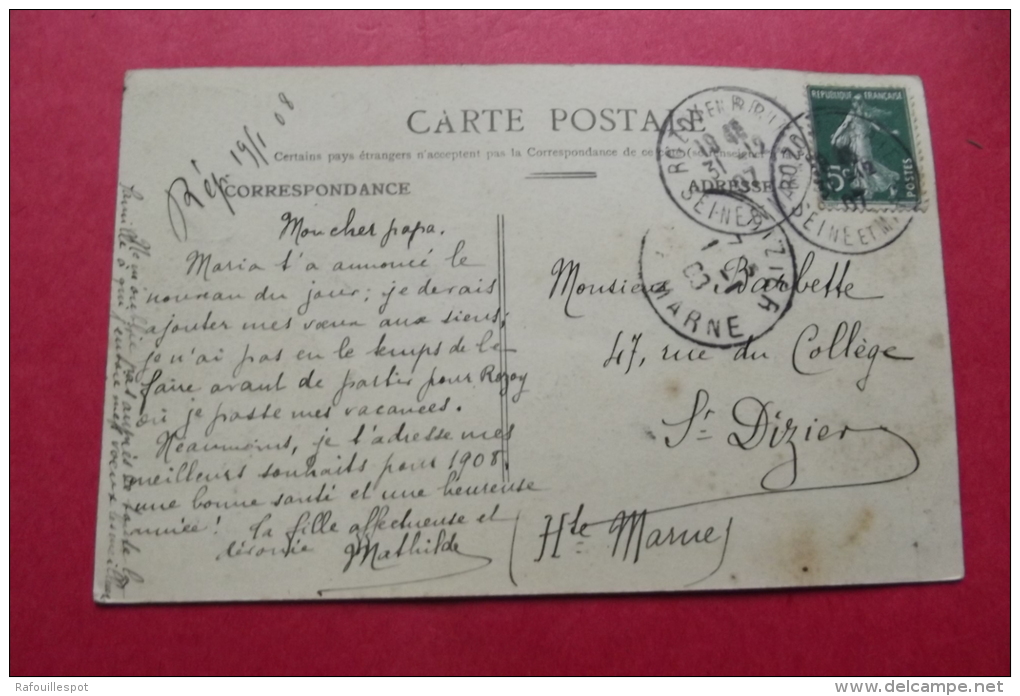 Rép. 19/1 08
CARTE POSTALE
Certains pays étrangers n'acceptent pas la Correspondance de ce
CORRESPONDANCE
ADRESSE
REPUBLIQUE FRANÇAISE
5c
POSTES
SEINE ET M
31 -12
07
MARNE
Mon cher papa.
Maria t'a annoncé le
nouveau du jour; je devais
ajouter mes vœux aux siens;
je n'ai pas eu le temps de le
faire avant de partir pour Rozoy
où je passe mes vacances.
Néanmoins, je t'adresse mes
meilleurs souhaits pour 1908,
une bonne santé et une heureuse
année! Ta fille affectueuse et
dévouée Mathilde
Ne m'oublie pas auprès de toute la
famille à qui j'envoie mes vœux les meilleurs
Monsieur Barbette
47, rue du Collège
St Dizier
(Hte Marne)
Rafouillespot
www.delcampe.net